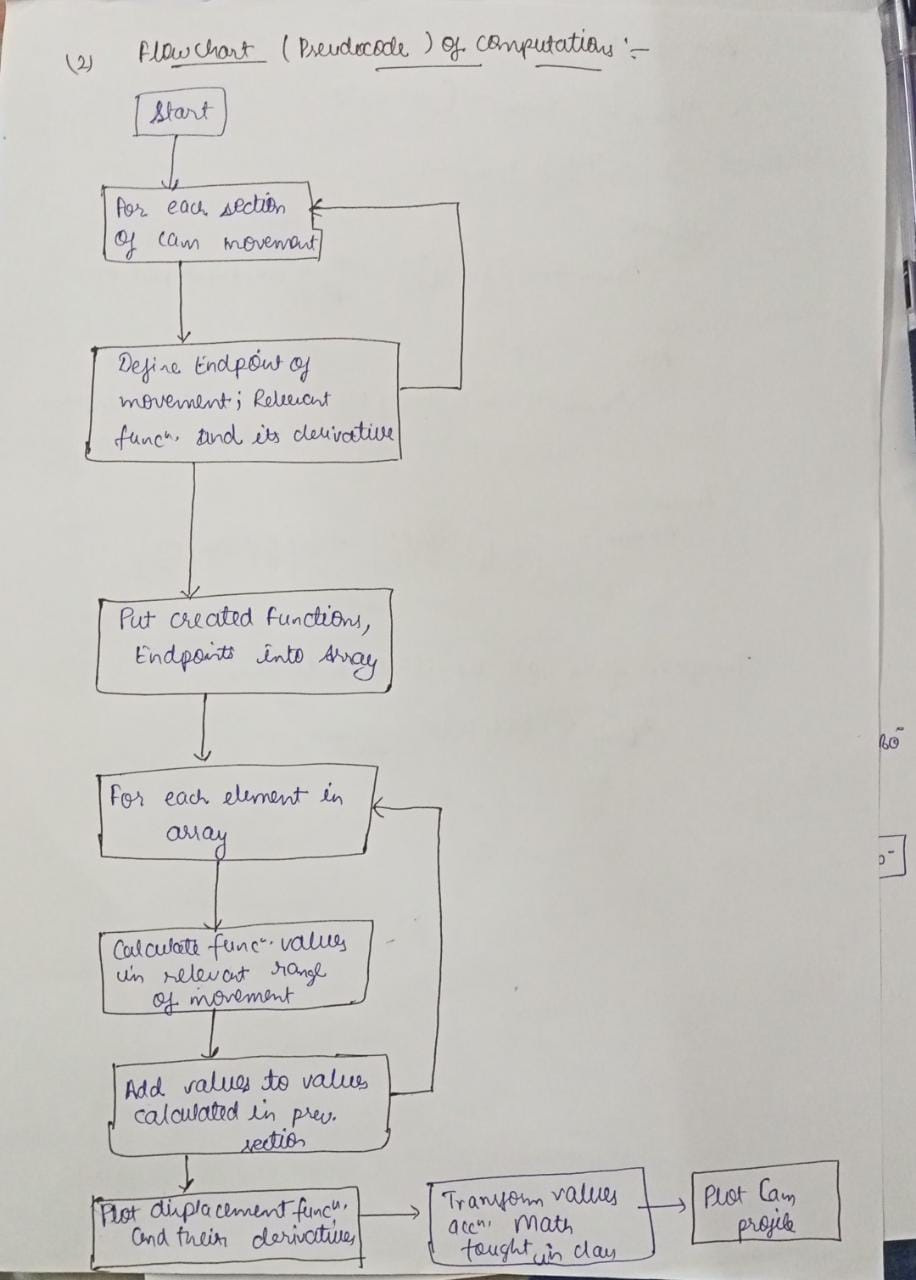 (2) Flowchart (Pseudocode) of computations :-
Start
For each section
of cam movement
Define Endpoint of
movement; Relevant
funcⁿ. and its derivative
Put created functions,
Endpoints into Array
For each element in
array
Calculate funcⁿ. values
in relevant range
of movement
Add values to values
calculated in prev.
section
Plot displacement funcⁿ.
and their derivatives
Transform values
accⁿ. Math
taught in class
Plot Cam
profile